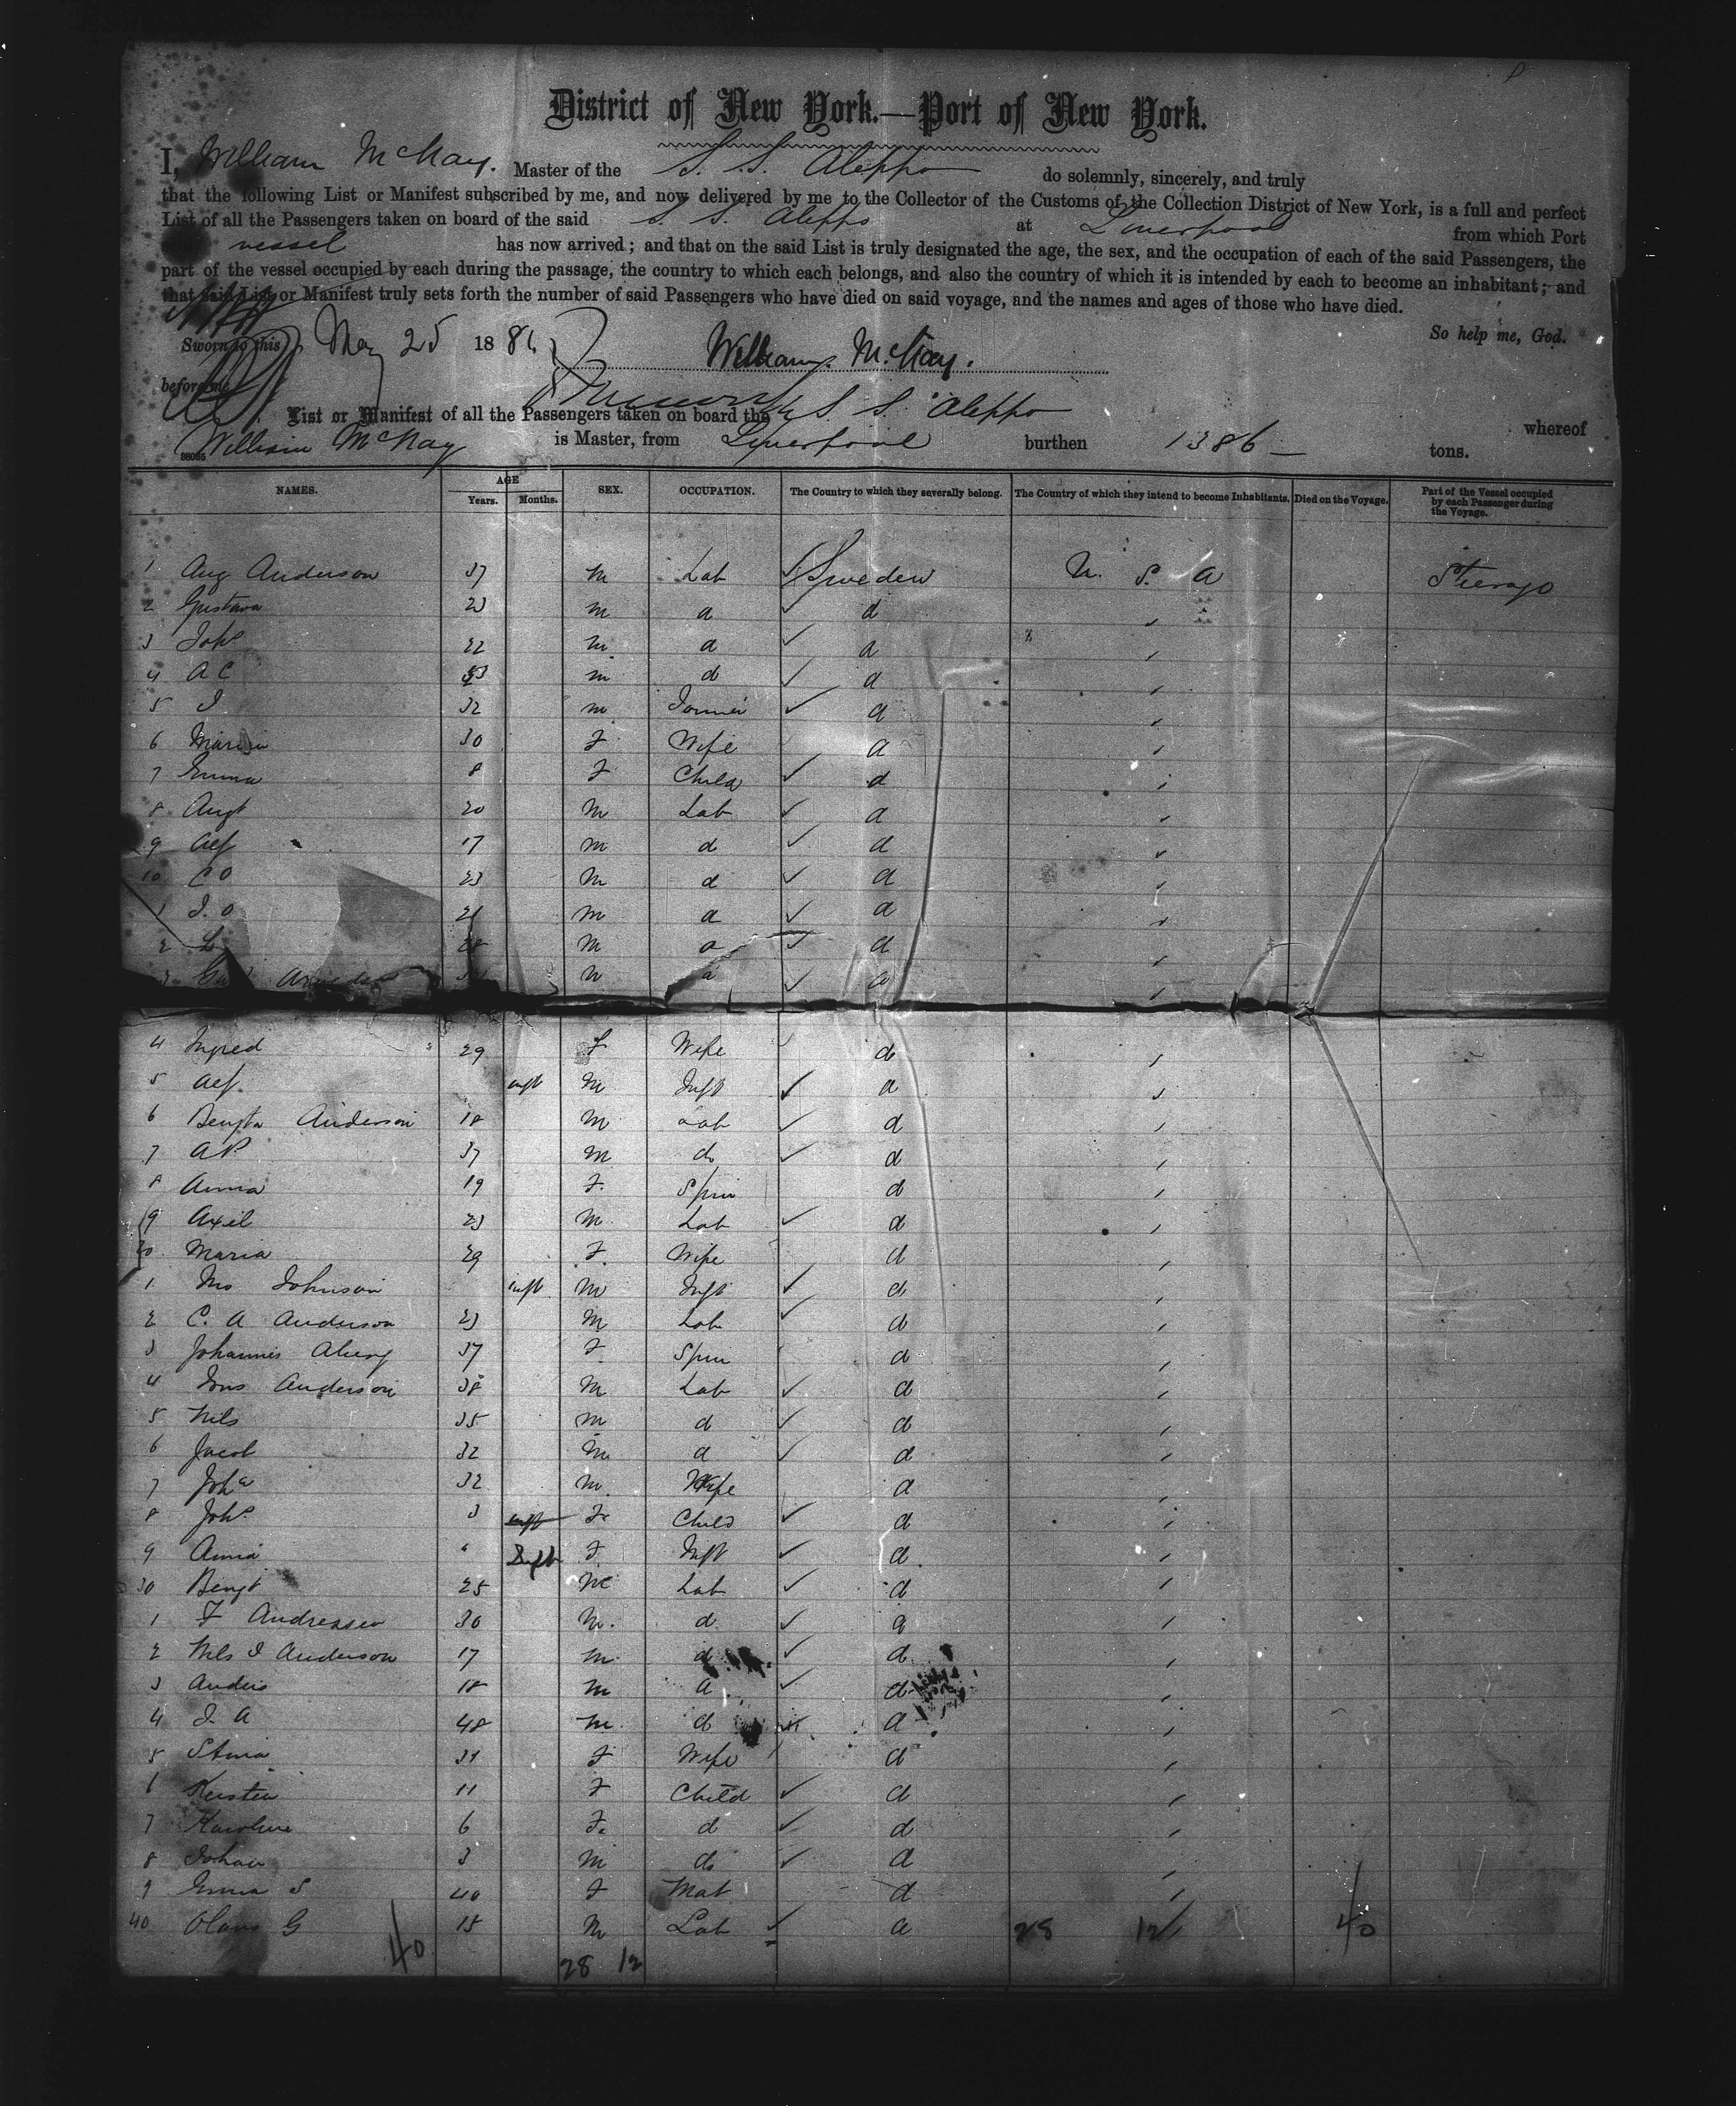 District of New York.—Port of New York.
I, William McKay. Master of the S. S. Aleppo do solemnly, sincerely, and truly
that the following List or Manifest subscribed by me, and now delivered by me to the Collector of the Customs of the Collection District of New York, is a full and perfect
List of all the Passengers taken on board of the said S S Aleppo at Liverpool from which Port
vessel has now arrived; and that on the said List is truly designated the age, the sex, and the occupation of each of the said Passengers, the
part of the vessel occupied by each during the passage, the country to which each belongs, and also the country of which it is intended by each to become an inhabitant; and
that said List or Manifest truly sets forth the number of said Passengers who have died on said voyage, and the names and ages of those who have died.
So help me, God.
Sworn to this May 25 188
William McKay.
before me
List or Manifest of all the Passengers taken on board the S S Aleppo whereof
William McKay is Master, from Liverpool burthen 1386 tons.
NAMES. AGE Years. Months. SEX. OCCUPATION. The Country to which they severally belong. The Country of which they intend to become Inhabitants. Died on the Voyage. Part of the Vessel occupied by each Passenger during the Voyage.
1 Aug Anderson 37 M Lab Sweden U. S. A
2 Gustava 23 m d d
3 22 m d d
4 A C m d d
5 J 32 m d
6 30 F Wife d
7 Emma 8 F Child d
8 Augt 20 M Lab d
9 17 m d d
10 C O 23 M d d
1 J. O 21 M d d
2 M d d
3 M d d
4 Ingred 29 F Wife d
5 inft M Inft d
6 Anderson 18 M Lab d
7 A P 37 M do d
8 Anna 19 F. Spin d
9 Axel 23 M Lab d
20 Maria 29 F. Wife d
1 Johnson inft M Inft d
2 C. A Anderson 23 M Lab d
3 Johannis 37 F Spin d
4 Anderson 38 M Lab d
5 Nils 35 M d d
6 Jacob 32 M d d
7 32 M. Wife d
8 3 F Child d
9 Anna " Inft F. Inft d
30 Bengt 25 M Lab d
1 F Andreasen 30 M. d d
2 Nils J Anderson 17 M d d
3 Anders 18 M d d
4 J. A 48 M d d
5 Stina F Wife d
6 Kerstin 11 F Child d
7 Karoline 6 F. d d
8 Johan 3 M do d
9 Emma S 40 F Mat d
40 Olaus G 18 M Lab d 28 12 40
40 28 12